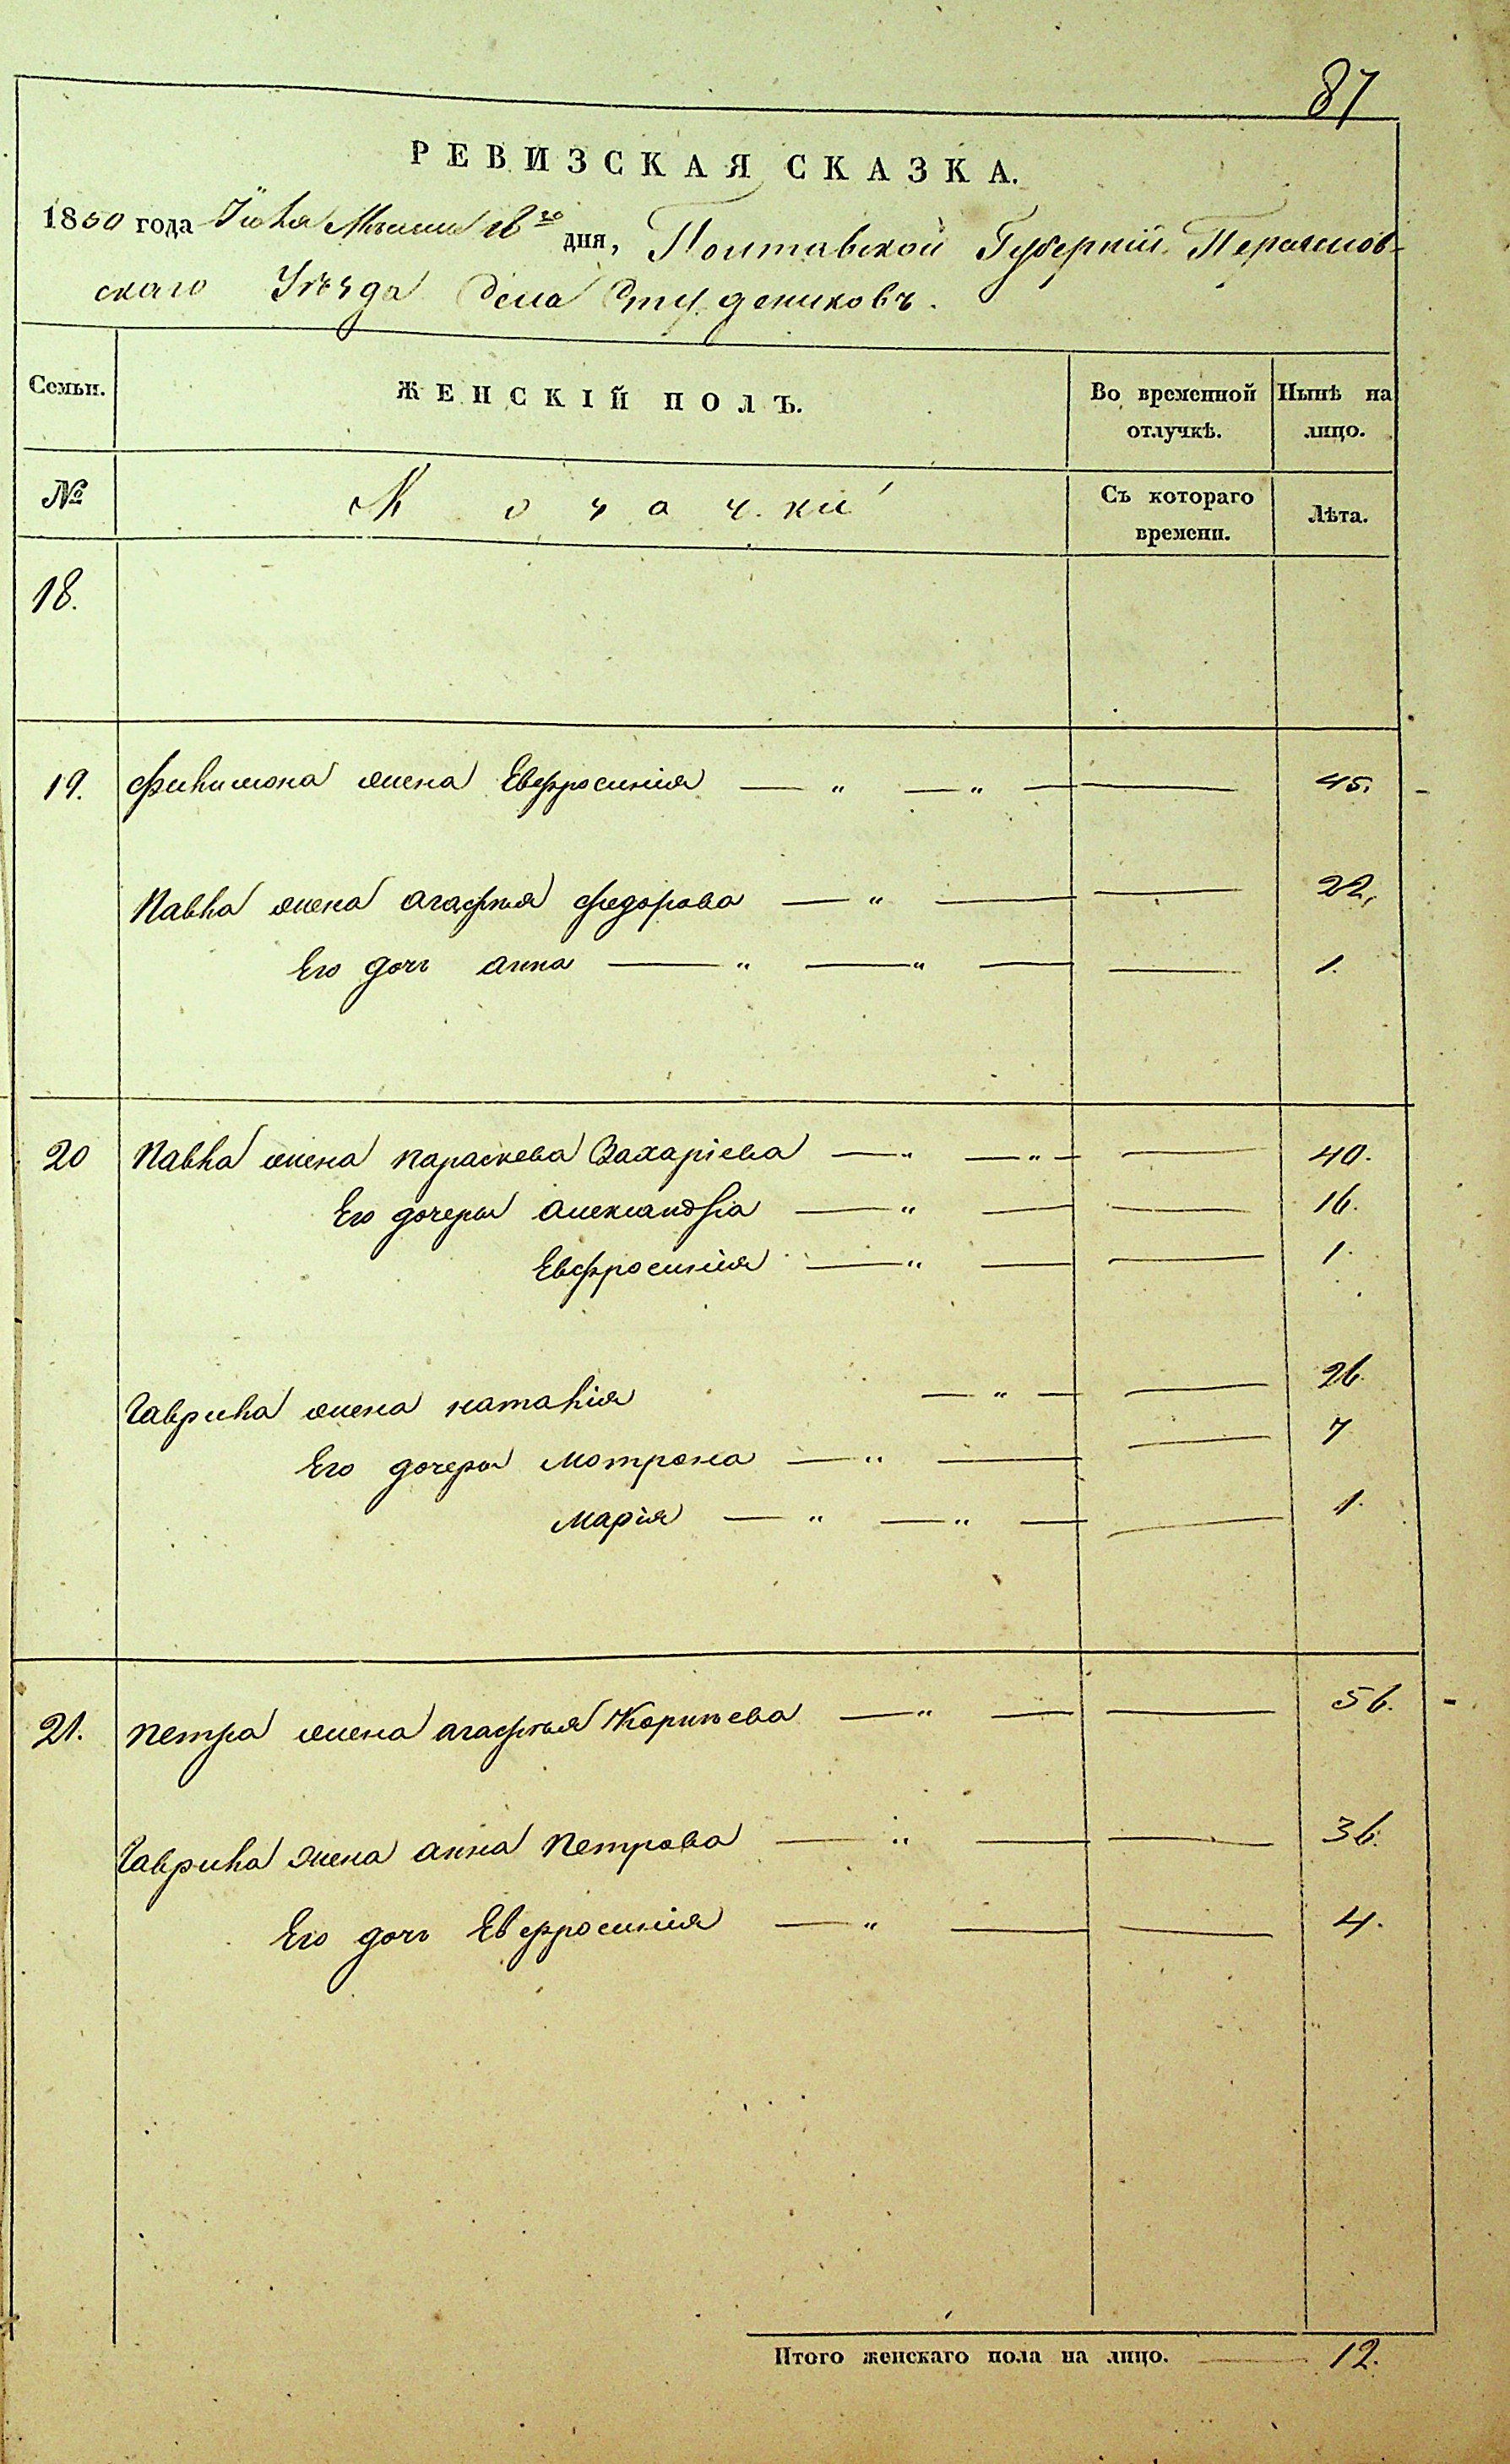 87
РЕВИЗСКАЯ СКАЗКА.
1850 года Іюля Мѣсяца 16го дня, Полтавской Губерніи Переяслов-
скаго Уѣзда Села Студениковъ.
Семьи. ЖЕНСКІЙ ПОЛЪ. Во временной отлучкѣ. Нынѣ на лицо.
№ Козачки Съ котораго времени. Лѣта.
18.
19. Филимона жена Евфросинія — „ — „ — — 45.
Павла жена агафья федорова — „ — — 22.
Его дочь анна — „ — „ — — 1.
20 Павла жена параскева Захаріева — „ — „ — — 40.
Его дочеры александра — „ — — 16.
Евфросинія — „ — — 1.
Гаврила жена наталія — „ — — 26.
Его дочеры мотрона — „ — — 7
марія — „ — „ — — 1.
21. петра жена агафья Корнѣева — „ — — 56.
Гаврила жена анна петрова — „ — — 36.
Его дочь Евфросинія — „ — — 4.
Итого женскаго пола на лицо. — 12.